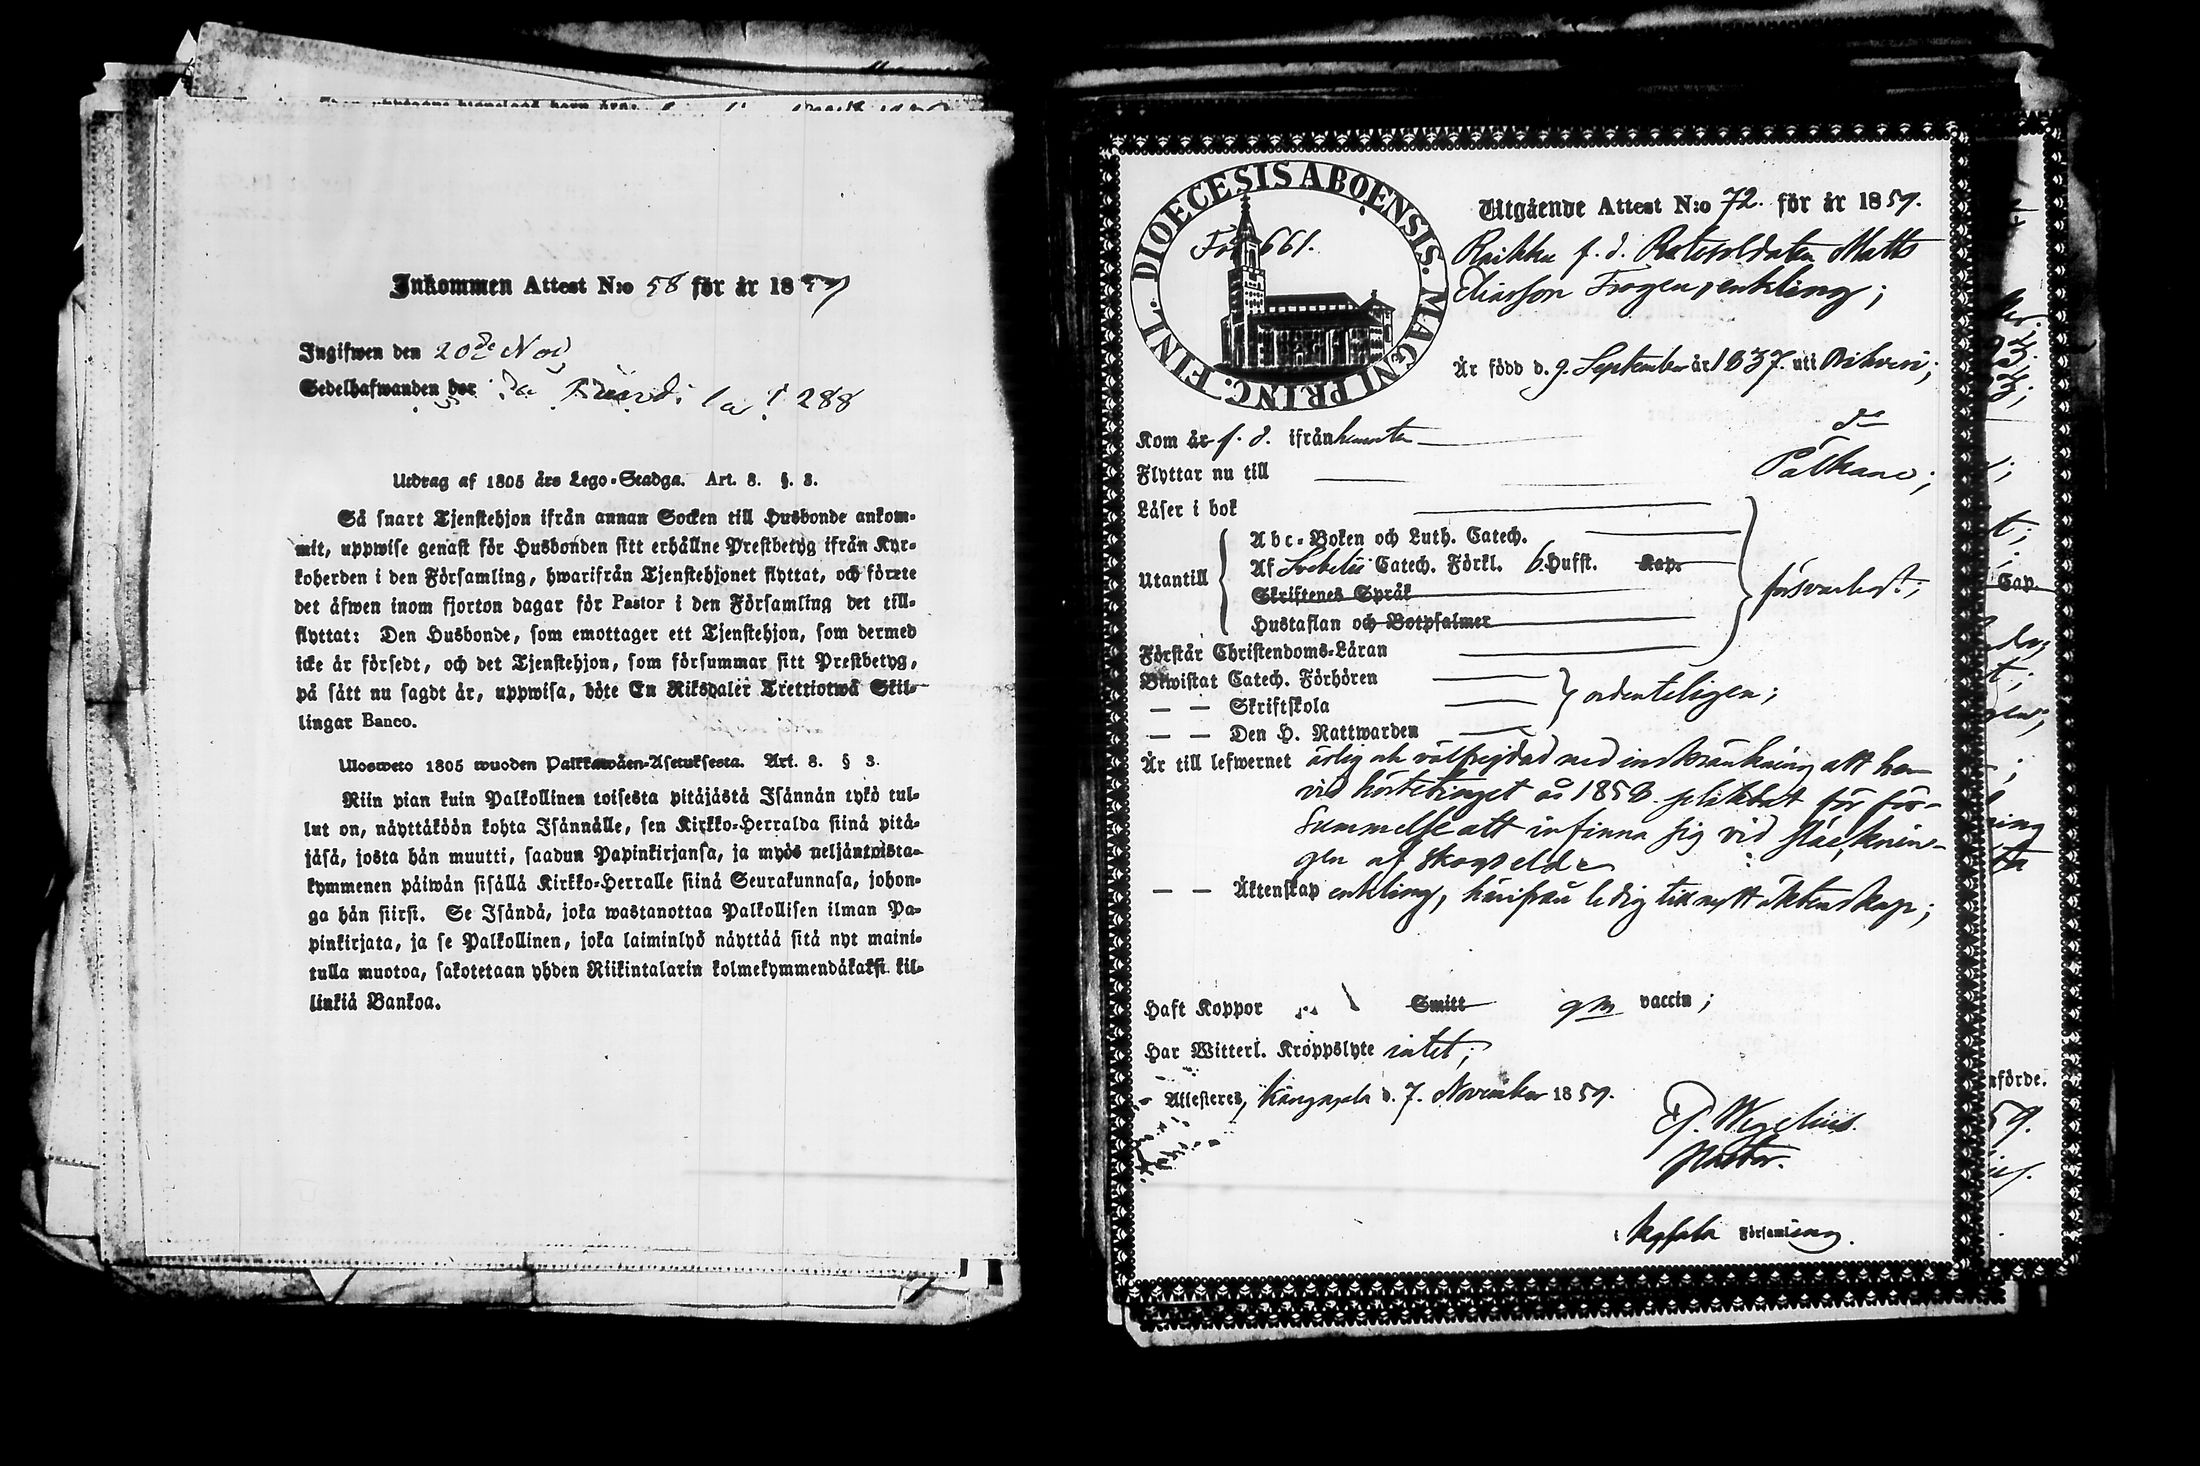 Inkommen Attest N:o 58 för år 1859
Ingifwen den 20de Nov
Sedelhafwanden bor 288
Utdrag af 1805 års Lego-Stadga. Art. 8. §. 3.
Så snart Tjenstehjon ifrån annan Socken till Husbonde ankom-
mit, uppwise genast för Husbonden sitt erhållne Prestbetyg ifrån Kyr-
koherden i den Församling, hwarifrån Tjenstehjonet flyttat, och förete
det äfwen inom fjorton dagar för Pastor i den Församling det till-
flyttat: Den Husbonde, som emottager ett Tjenstehjon, som dermed
icke är försedt, och det Tjenstehjon, som försummar sitt Prestbetyg,
på sätt nu sagdt är, uppwisa, böte En Riksdaler Trettiotwå Skil-
lingar Banco.
Ulosweto 1805 wuoden Palkkawäen-Asetuksesta. Art. 8. § 3.
Niin pian kuin Palkollinen toisesta pitäjästä Isännän tykö tul-
lut on, näyttäköön kohta Isännälle, sen Kirkko-Herralda siinä pitä-
jäsä, josta hän muutti, saadun Papinkirjansa, ja myös neljäntoista-
kymmenen päiwän sisällä Kirkko-Herralle siinä Seurakunnasa, johon-
ga hän siirsi. Se Isändä, joka wastanottaa Palkollisen ilman Pa-
pinkirjata, ja se Palkollinen, joka laiminlyö näyttää sitä nyt maini-
tulla muotoa, sakotetaan yhden Riikintalarin kolmekymmendäkaksi kil-
linkiä Bankoa.
DIOECESIS ABOENSIS. MAGNI PRINC. FINL.
Fol 661.
Utgående Attest N:o 72. för år 1859.
Raikku f. d. Rotesoldaten Matts
Eliasson Frogen, enkling;
Är född d. 9. September år 1837. uti
Kom år f. d. ifrån
Flyttar nu till Pälkäne;
Läser i bok
Utantill
Abc-Boken och Luth. Catech.
Af Svebelii Catech. Förkl. 6. Hufst. Kap.
Skriftenes Språk
Hustaflan och Botpsalmer
försvarligt;
Förstår Christendoms-Läran
Bewistat Catech. Förhören
— — Skriftskola
— — Den H. Nattwarden
ordenteligen;
Är till lefwernet ärlig och välfrejdad med inskränkning att han
vid höstetinget år 1858 pliktat för för-
summelse att infinna sig vid släcknin-
gen af skogseld
— — Äktenskap enkling, härifrån ledig till nytt äktenskap;
Haft Koppor Smitt gm vaccin;
Har Witterl. Kroppslyte intet;
Attesteres, Kangasala d. 7. November 1859.
Wegelius.
Pastor.
i Församling.